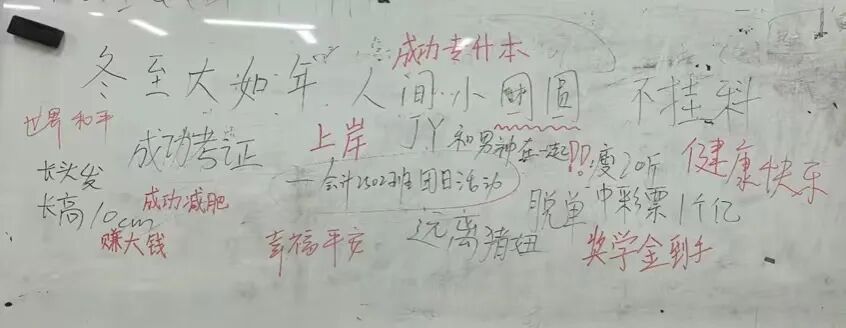 成功专升本
冬至大如年 人间小团圆 不挂科
世界和平
成功考证 上岸 JY和男神在一起!! 瘦20斤 健康快乐
长头发
—会计2502班团日活动
长高10cm 成功减肥 脱单 中彩票1个亿
赚大钱 幸福平安 远离猪妞 奖学金到手